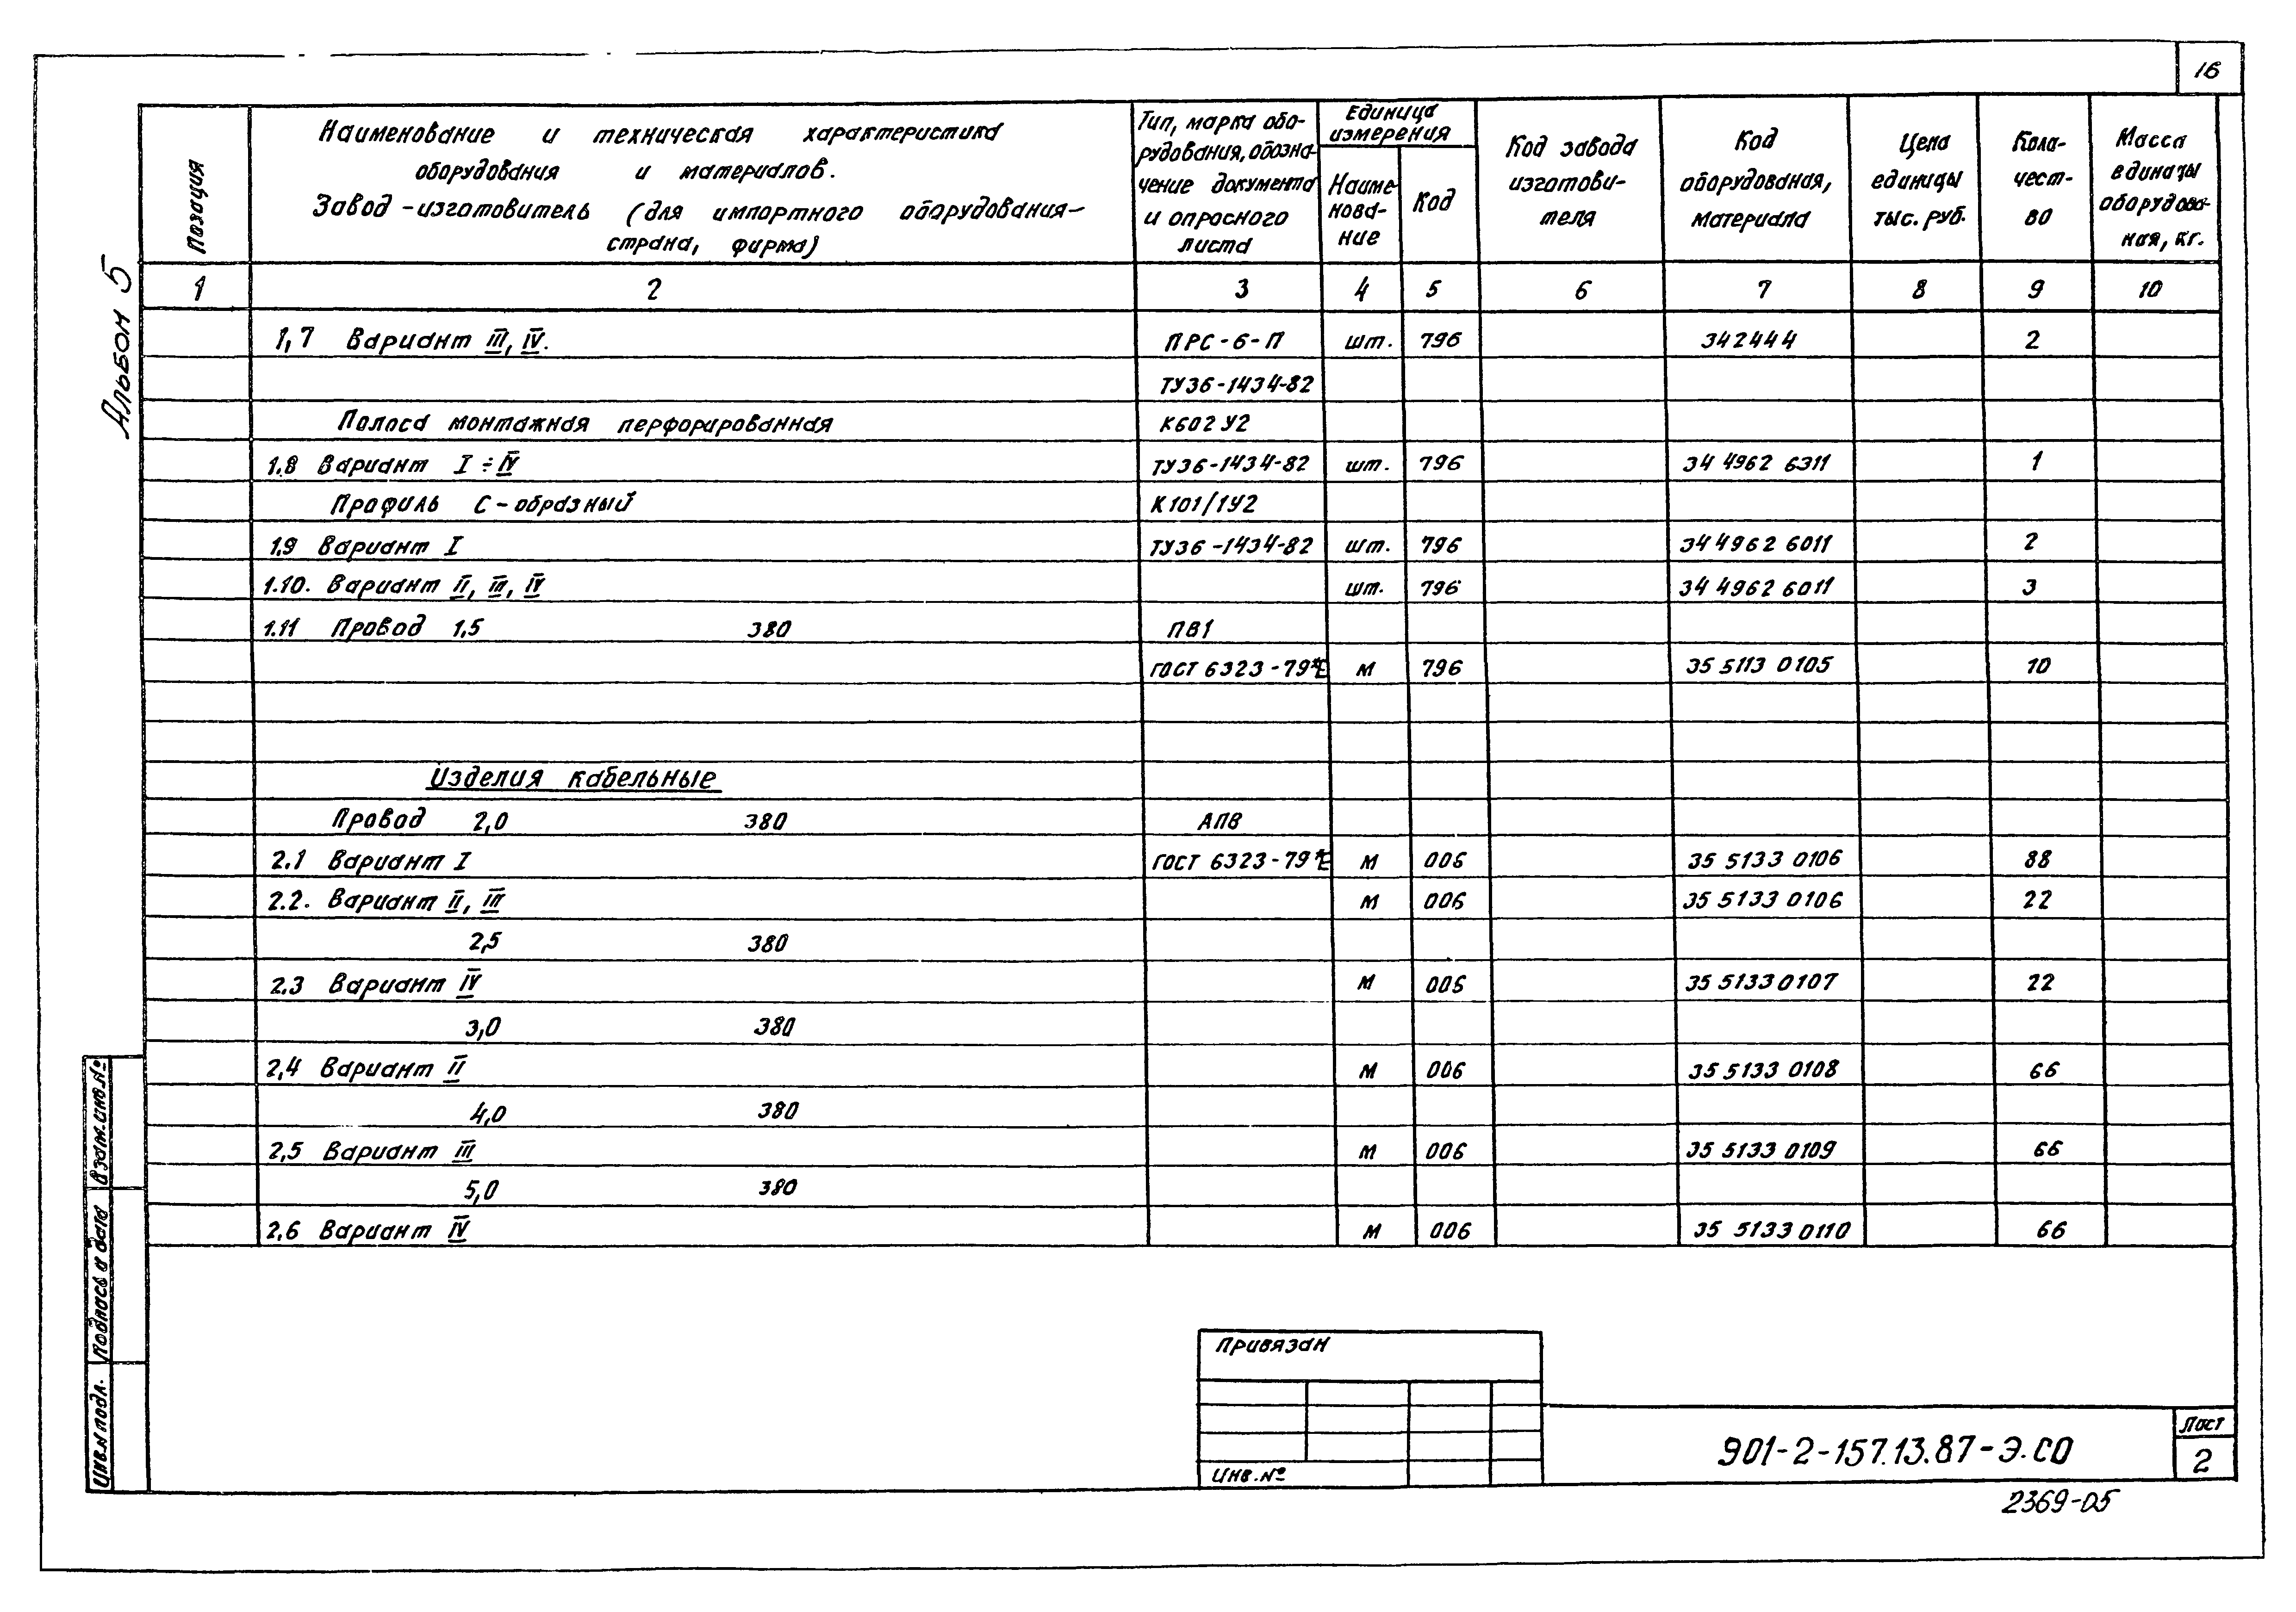 16
Альбом 5
Позиция
Наименование и техническая характеристика
оборудования и материалов.
Завод-изготовитель (для импортного оборудования-
страна, фирма)
Тип, марка обо-
рудования, обозна-
чение документа
и опросного
листа
Единица
измерения
Наиме
нова-
ние
Код
Код завода
изготови-
теля
Код
оборудования,
материала
Цена
единицы
тыс. руб.
Коли-
чест-
во
Масса
единицы
оборудова-
ния, кг.
1 2 3 4 5 6 7 8 9 10
1,7 Вариант III, IV. ПРС-6-П шт. 796 342444 2
ТУ36-1434-82
Полоса монтажная перфорированная К602У2
1.8 Вариант I ÷ IV ТУ36-1434-82 шт. 796 34 4962 6311 1
Профиль С-образный К101/1У2
1.9 Вариант I ТУ36-1434-82 шт. 796 34 4962 6011 2
1.10. Вариант II, III, IV шт. 796 34 4962 6011 3
1.11 Провод 1,5 380 ПВ1
ГОСТ 6323-79*Е м 796 35 5113 0105 10
Изделия кабельные
Провод 2,0 380 АПВ
2.1 Вариант I ГОСТ 6323-79*Е м 006 35 5133 0106 88
2.2. Вариант II, III м 006 35 5133 0106 22
2,5 380
2.3 Вариант IV м 006 35 5133 0107 22
3,0 380
2,4 Вариант II м 006 35 5133 0108 66
4,0 380
2,5 Вариант III м 006 35 5133 0109 66
5,0 380
2,6 Вариант IV м 006 35 5133 0110 66
Взам.инв.№
Подпись и дата
Инв.№подл.
Привязан
Инв.№
901-2-157.13.87-Э.СО
Лист
2
2369-05